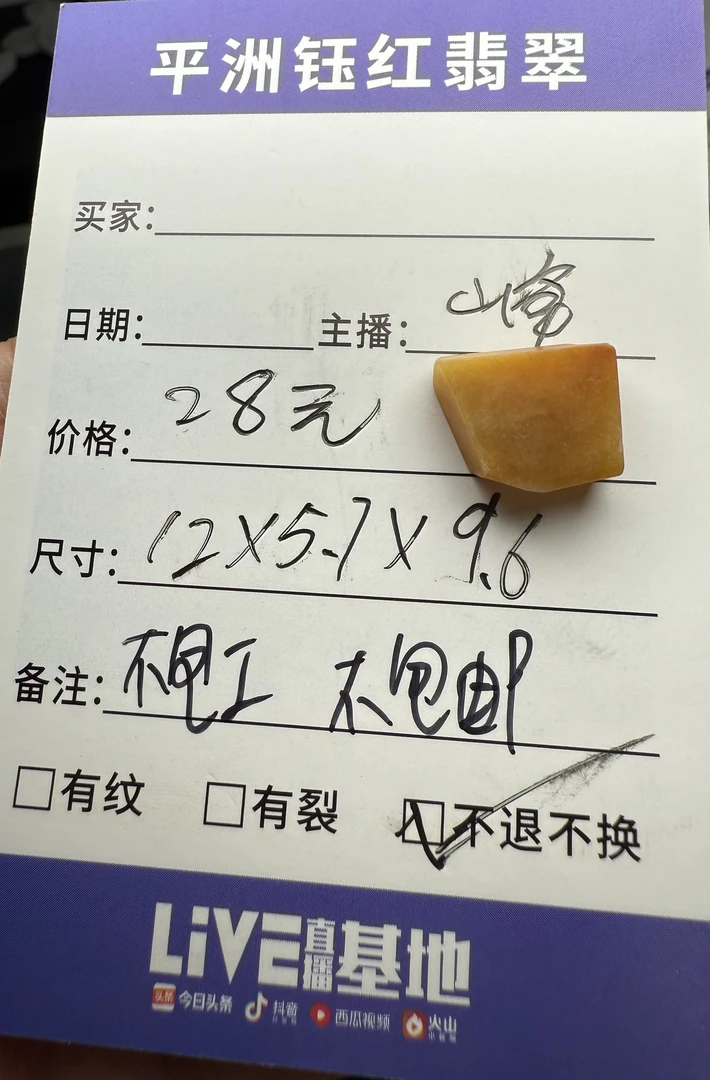 平洲钰红翡翠
买家:
日期: 主播: 山峰
价格: 28元
尺寸: 12X5.7X9.6
备注: 不包工 不包邮
□有纹 □有裂 ☑不退不换
LiVE直播基地
头条 今日头条 抖音 西瓜视频 火山